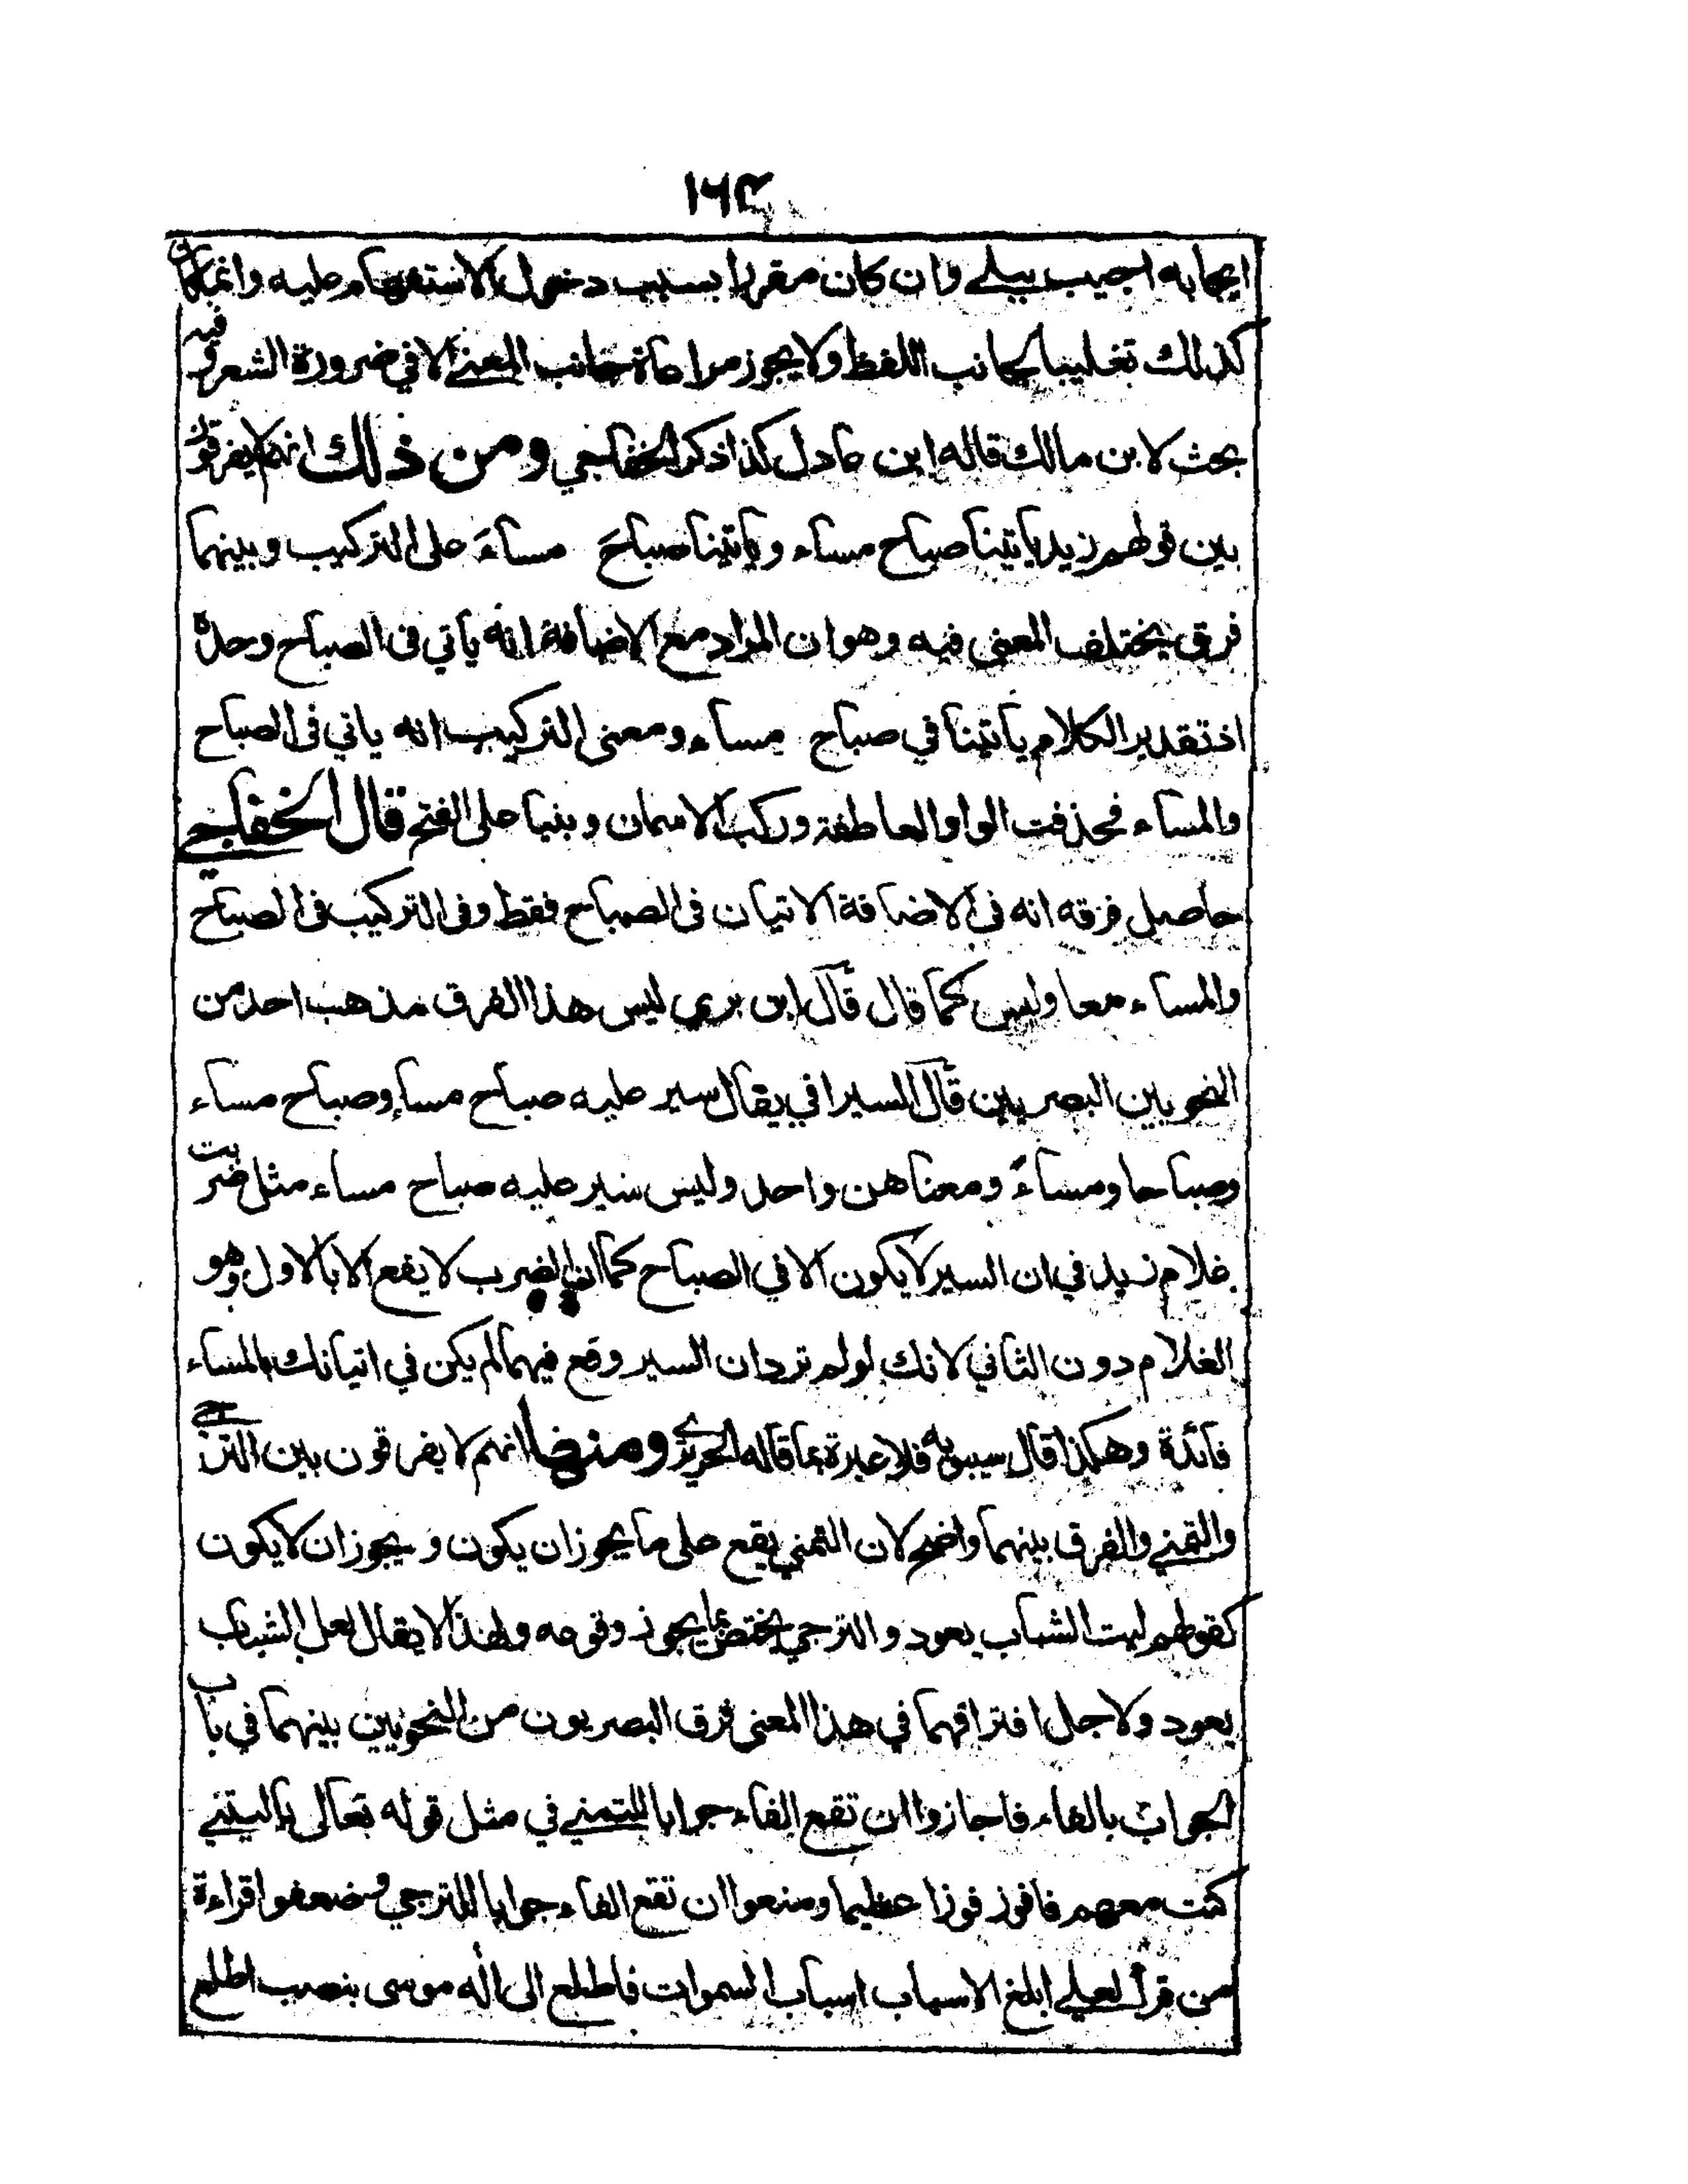 ١٦٣
ايجابه اجيب ببلى وان كان مقررا بسبب دخول الاستفهام عليه وانما كان
كذلك تغليبا لجانب اللفظ ولا يجوز مراعاة جانب المعنى الا في ضرورة الشعر وفيه
بحث لابن مالك قاله ابن عادل كذا ذكر الخفاجي ومن ذلك انهم لا يفرقون
بين قولهم زيد يأتينا صباح مساء ويأتينا صباحَ مساءَ على التركيب وبينهما
فرق يختلف المعنى فيه وهو ان المراد مع الاضافة انه يأتي في الصباح وحده
اذ تقدير الكلام يأتينا في صباح مساء ومعنى التركيب انه ياتي في الصباح
والمساء فحذفت الواو العاطفة وركب الاسمان وبنيا على الفتح قال الخفاجي
حاصل فرقه انه في الاضافة الاتيان في الصباح فقط وفي التركيب في الصباح
والمساء معا وليس كما قال قال ابن بري ليس هذا الفرق مذهب احد من
النحويين البصريين قال السيرافي يقال سير عليه صباح مساء وصباح مساء
وصباحا ومساءً ومعناهن واحد وليس سير عليه صباح مساء مثل ضربت
غلام زيد في ان السير لا يكون الا في الصباح كما ان الضرب لا يقع الا بالاول وهو
الغلام دون الثاني لانك لو لم ترد ان السير وقع فيهما لم يكن في اتيانك بالمساء
فائدة وهكذا قال سيبويه فلا عبرة بما قاله الحريري ومنها انهم لا يفرقون بين الترجي
والتمني والفرق بينهما واضح لان التمني يقع على ما يجوز ان يكون ويجوز ان لا يكون
كقولهم ليت الشباب يعود والترجي يختص بما يجوز وقوعه ولهذا لا يقال لعل الشباب
يعود ولاجل افتراقهما في هذا المعنى فرق البصريون من النحويين بينهما في باب
الجواب بالفاء فاجازوا ان تقع الفاء جوابا للتمني في مثل قوله تعالى يا ليتني
كنت معهم فافوز فوزا عظيما ومنعوا ان تقع الفاء جوابا للترجي وضعفوا قراءة
من قرأ لعلي ابلغ الاسباب اسباب السموات فاطلع الى اله موسى بنصب اطلع